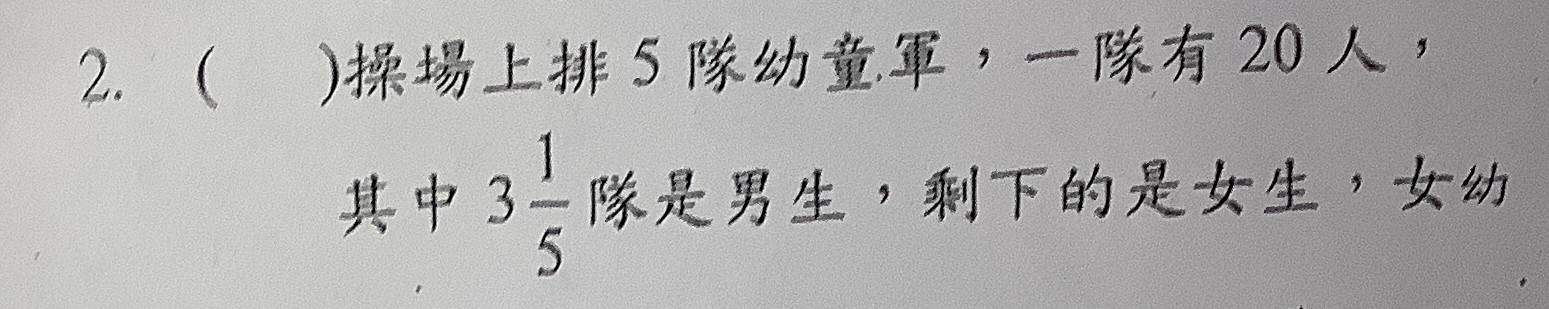 2. ( )操場上排 5 隊幼童軍，一隊有 20 人，
其中 3 1/5 隊是男生，剩下的是女生，女幼